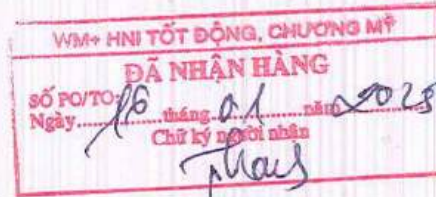 WM+ HNI TỐT ĐỘNG, CHƯƠNG MỸ
ĐÃ NHẬN HÀNG
SỐ PO/TO:
Ngày 16 tháng 01 năm 2025
Chữ ký người nhận